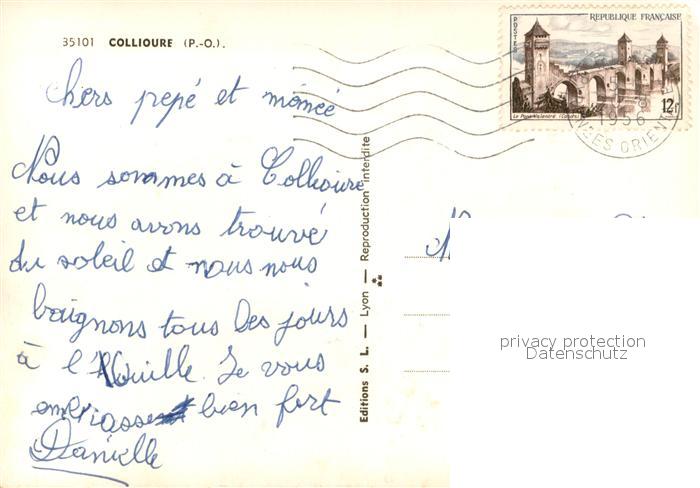 35101 COLLIOURE (P.-O.).
Chers pepé et mémée
Nous sommes à Collioure
et nous avons trouvé
du soleil et nous nous
baignons tous les jours
à l'Ouille. Je vous
embrasse bien fort
Danielle
Editions S. L. — Lyon — Reproduction interdite
REPUBLIQUE FRANÇAISE
POSTES
12f
Le Pont Valentré (Cahors)
1956
ORIENT
privacy protection
Datenschutz